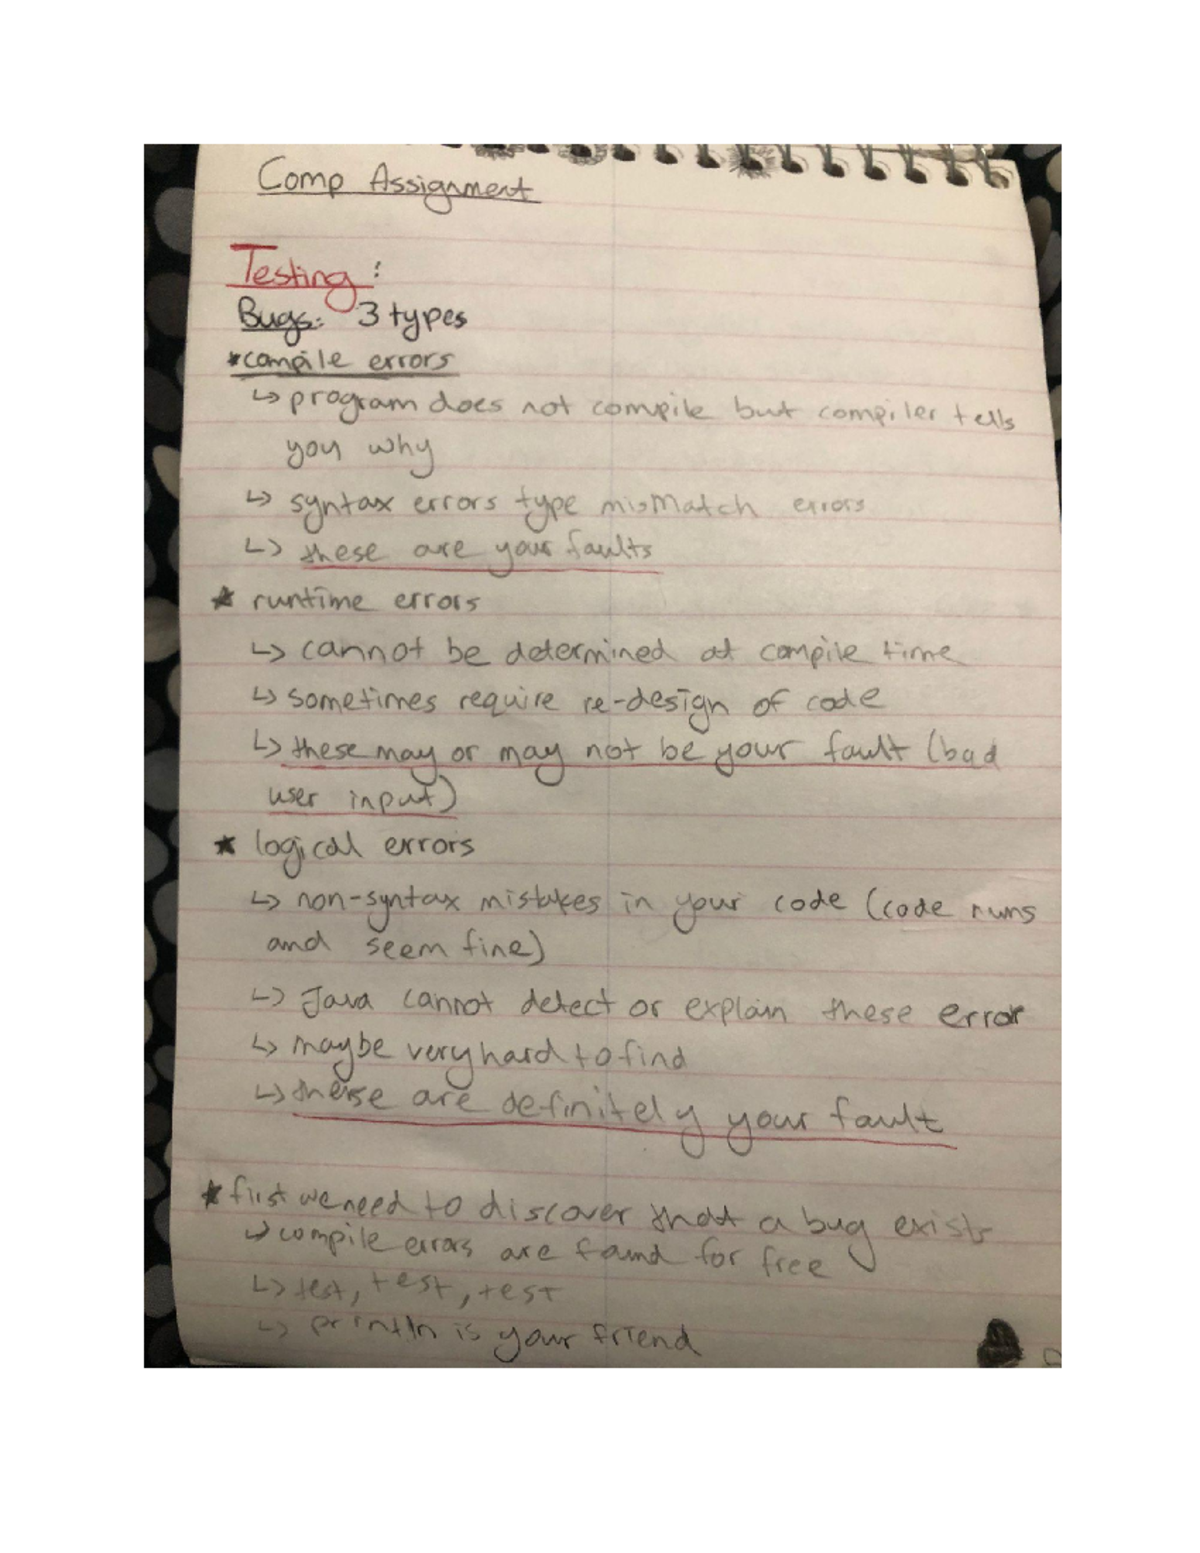 Comp Assignment
Testing:
Bugs: 3 types
*compile errors
↳ program does not compile but compiler tells
you why
↳ syntax errors type mismatch errors
↳ these are your faults
* runtime errors
↳ cannot be determined at compile time
↳ sometimes require re-design of code
↳ these may or may not be your fault (bad
user input)
* logical errors
↳ non-syntax mistakes in your code (code runs
and seem fine)
↳ Java cannot detect or explain these error
↳ maybe very hard to find
↳ these are definitely your fault
* first we need to discover that a bug exists
↳ compile errors are found for free
↳ test, test, test
↳ println is your friend